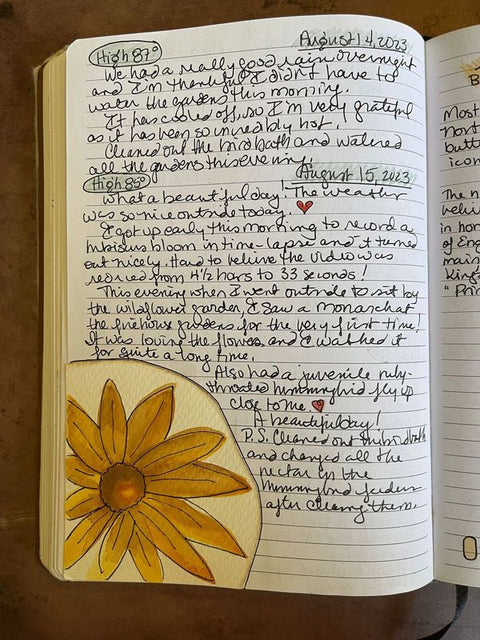 High 87° August 14, 2023
We had a really good rain overnight
and I'm thankful I didn't have to
water the gardens this morning.
It has cooled off, so I'm very grateful
as it has been so incredibly hot.
Cleaned out the bird bath and watered
all the gardens this evening.
High 85° August 15, 2023
What a beautiful day! The weather
was so nice outside today.
I got up early this morning to record a
hibiscus bloom in time-lapse and it turned
out nicely. Hard to believe the video was
reduced from 4½ hours to 33 seconds!
This evening when I went outside to sit by
the wildflower garden, I saw a monarch at
the firehouse gardens for the very first time!
It was loving the flowers and I watched it
for quite a long time.
Also had a juvenile ruby-
throated hummingbird fly up
close to me.
A beautiful day!
P.S. Cleaned out the birdbath
and changed all the
nectar in the
hummingbird feeders
after cleaning them.
B
Most
nort
butt
icon
The n
belie
in hon
of Eng
main
King
"Prin